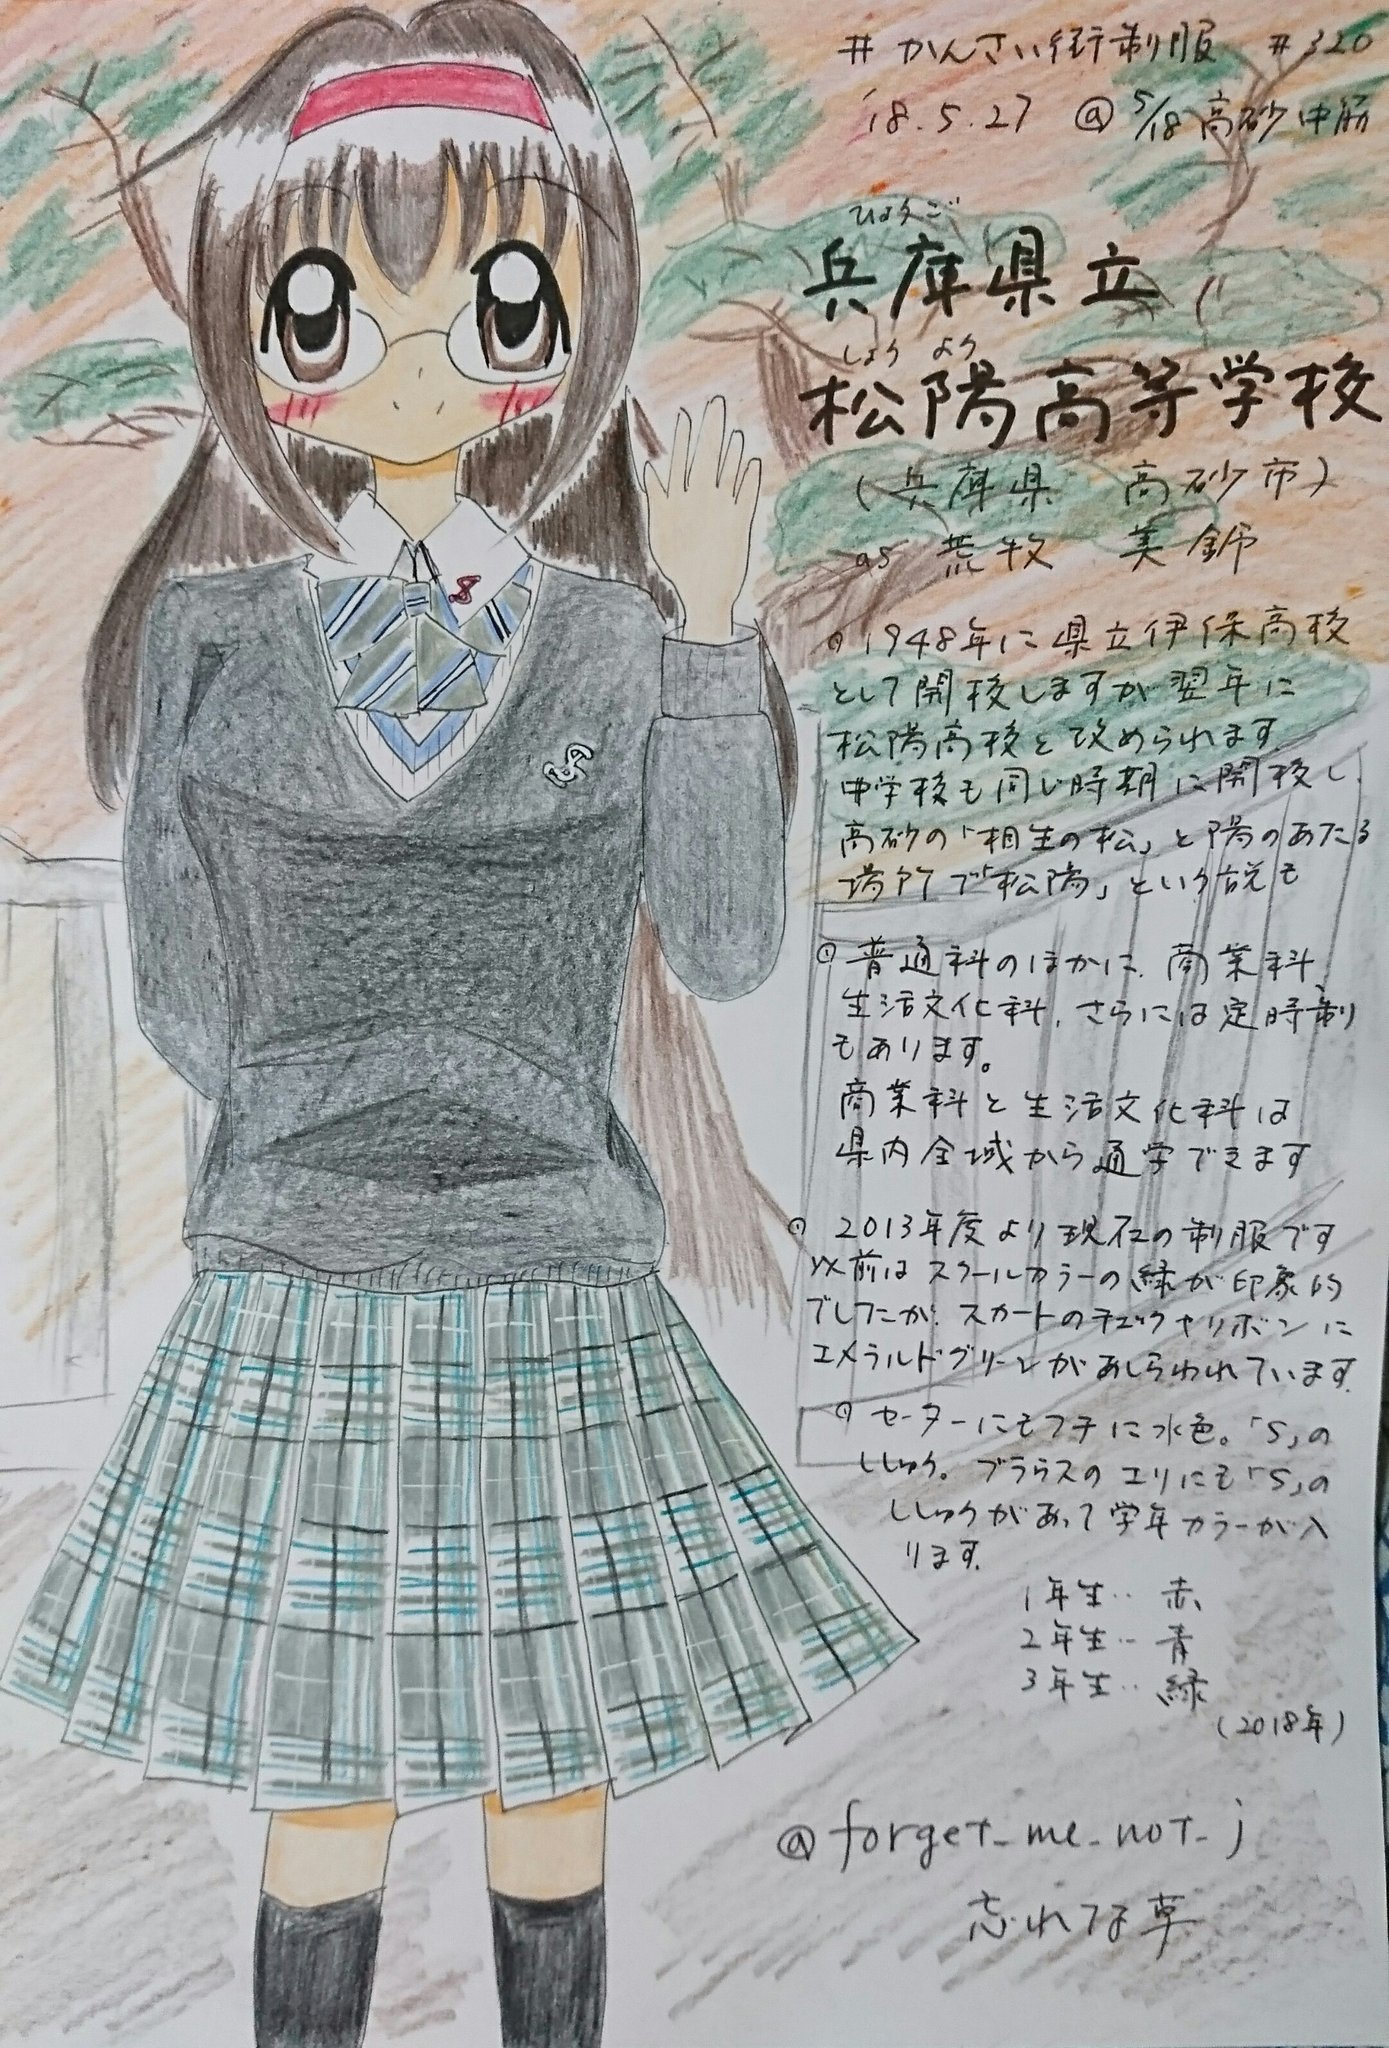 #かんさい街制服 #320
'18.5.27 @5/18 高砂中筋
ひょうご
兵庫県立
しょう よう
松陽高等学校
(兵庫県 高砂市)
as 荒牧 美錦
1948年に県立伊保高校
として開校しますが翌年に
松陽高校と改められます
中学校も同じ時期に開校し、
高砂の「相生の松」と陽のあたる
場所で「松陽」という説も
普通科のほかに、商業科、
生活文化科、さらには定時制
もあります。
商業科と生活文化科は
県内全域から通学できます
2013年度より現在の制服です
以前はスクールカラーの緑が印象的
でしたが、スカートのチェックやリボンに
エメラルドグリーンがあしらわれています。
セーターにもフチに水色。「S」の
ししゅう。ブラウスのエリにも「S」の
ししゅうがあって学年カラーが入
ります。
1年生‥赤
2年生‥青
3年生‥緑
(2018年)
@forget_me_not_j
忘れな草